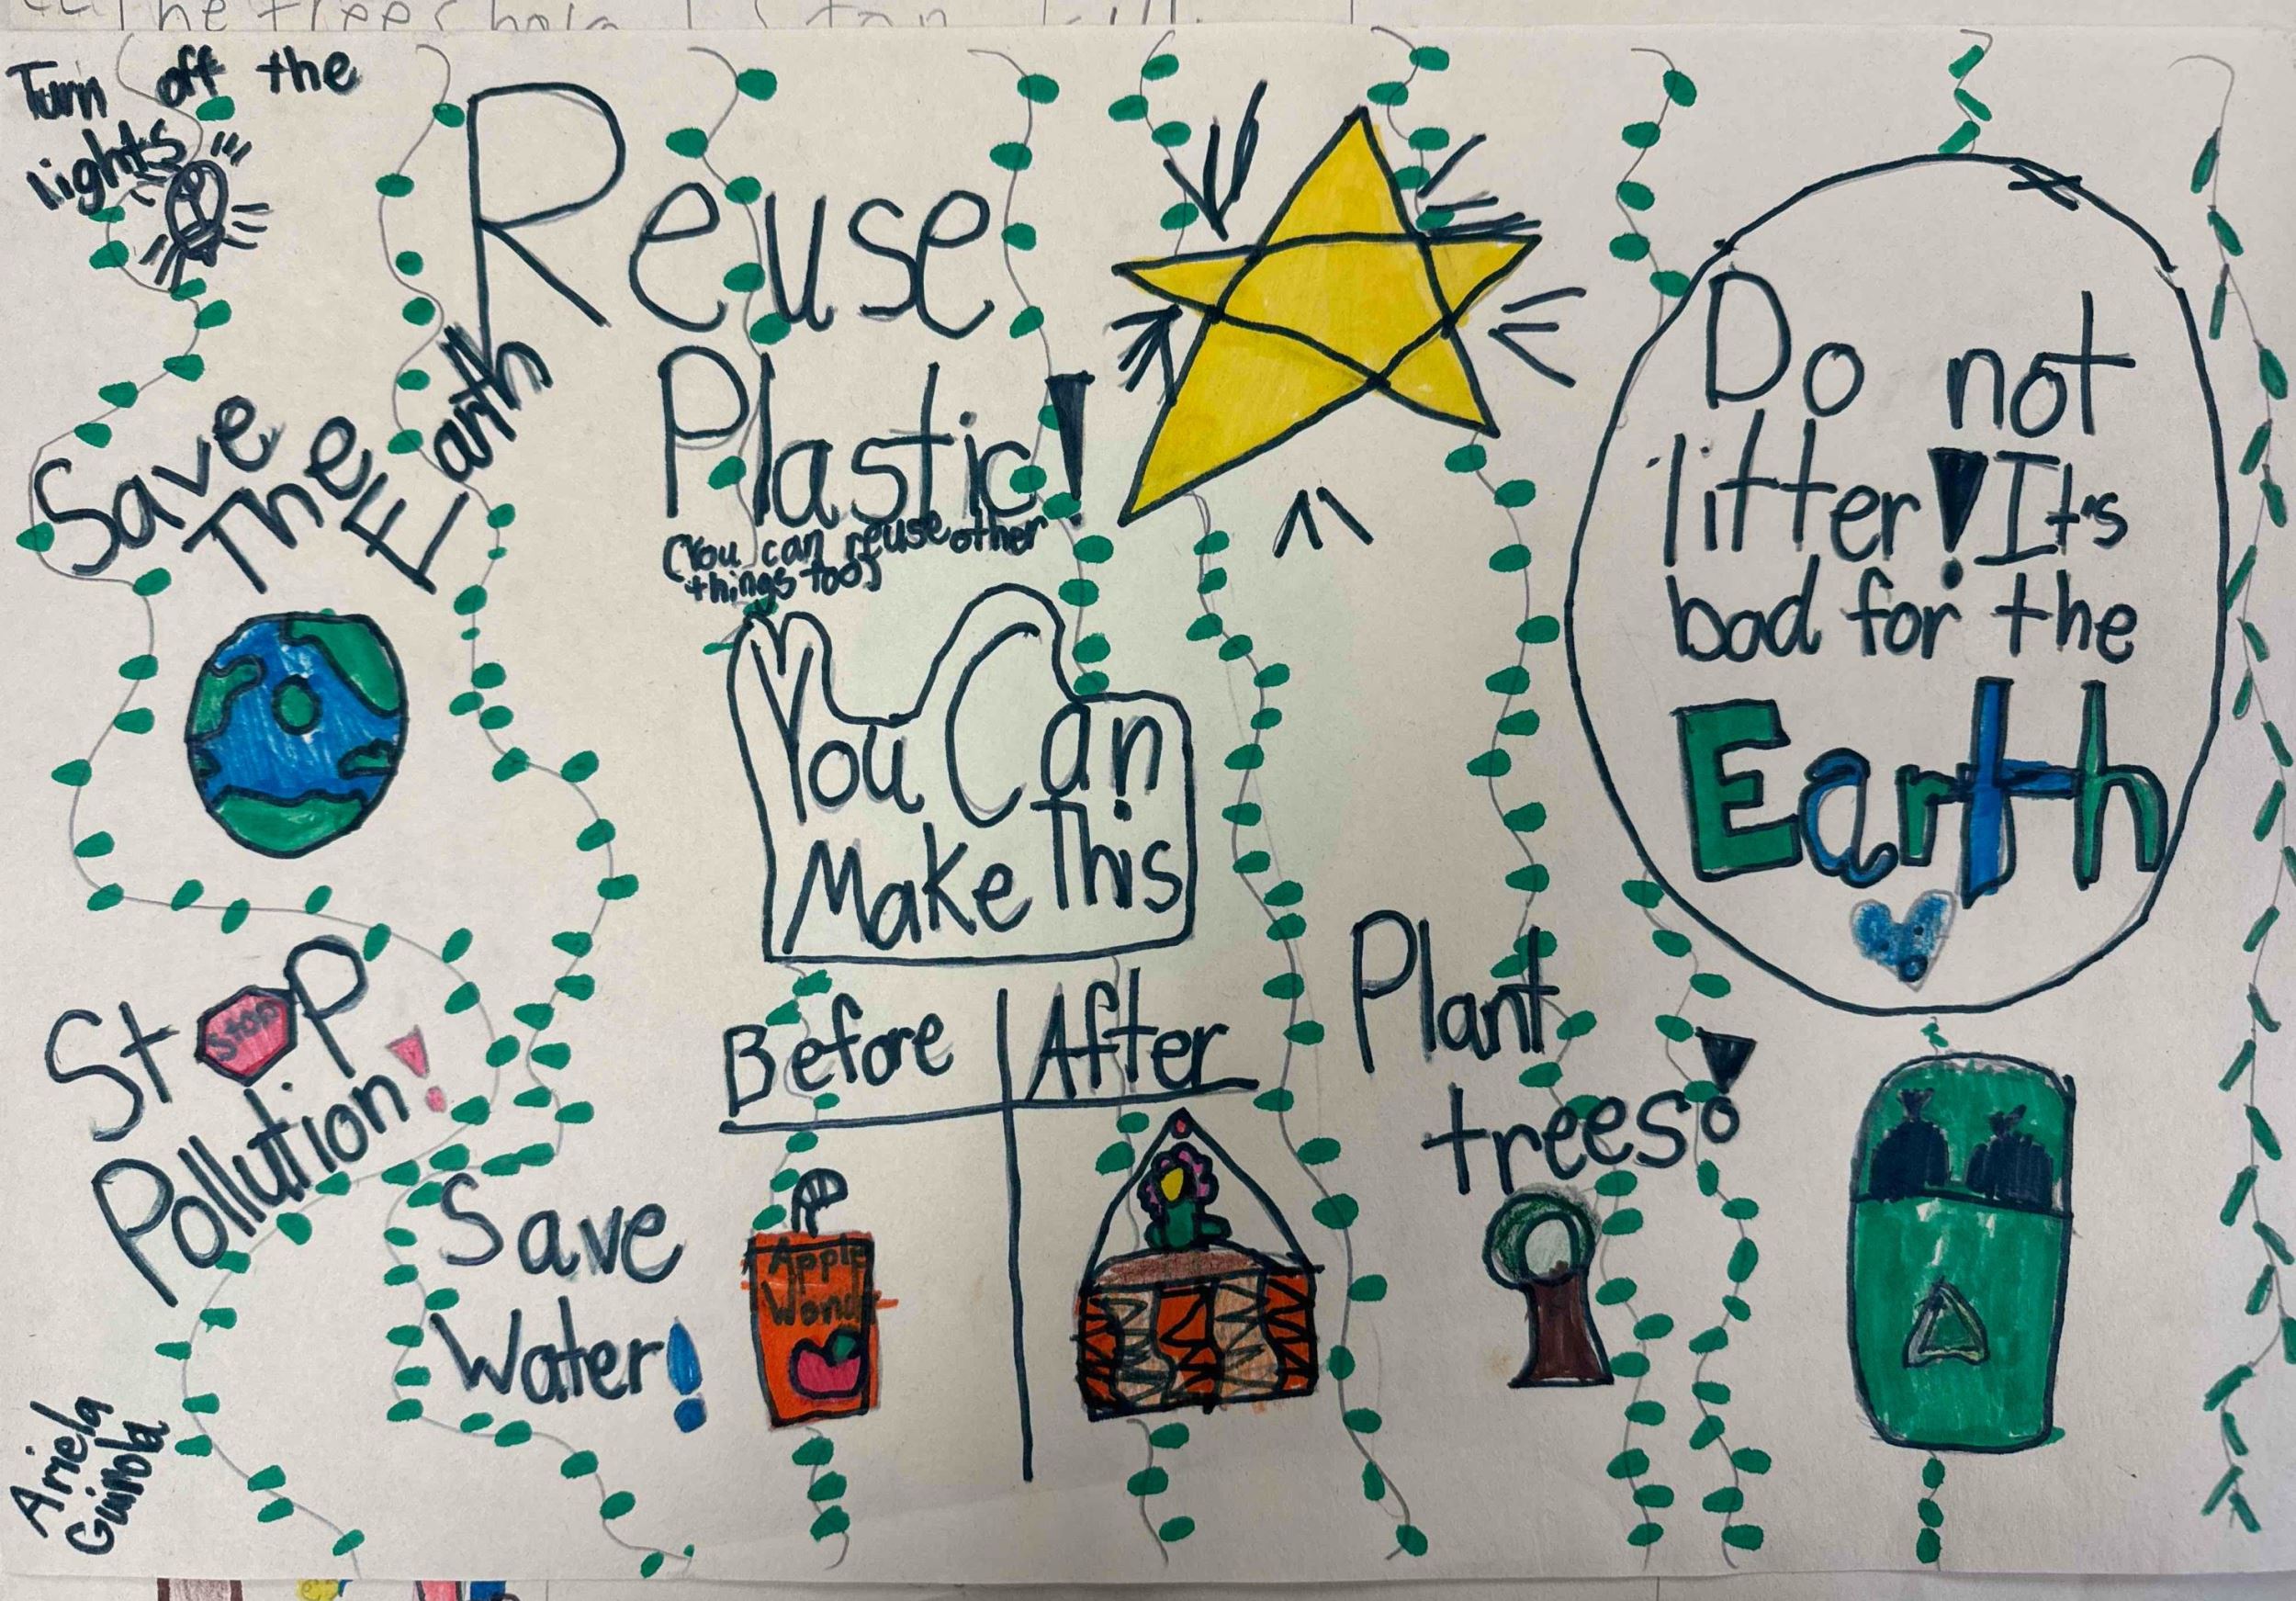 Turn off the
lights
Save
The
Earth
Reuse
Plastic!
(You can reuse other
things too)
You Can
Make This
Before
After
Apple
Stop
Stop
Pollution!
Save
Water!
Plant
trees!
Do not
litter! It's
bad for the
Earth
Ariela